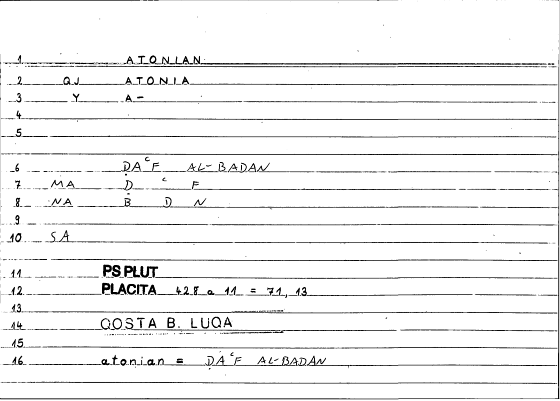 1 ATONIAN
2 QJ ATONIA
3 Y A-
4
5
6 ḌAʿF AL-BADAN
7 MA Ḍ ʿ F
8 NA B D N
9
10 SA
11 PS PLUT
12 PLACITA 428 a 11 = 71, 13
13
14 QOSTA B. LUQA
15
16 atonian = ḌAʿF AL-BADAN